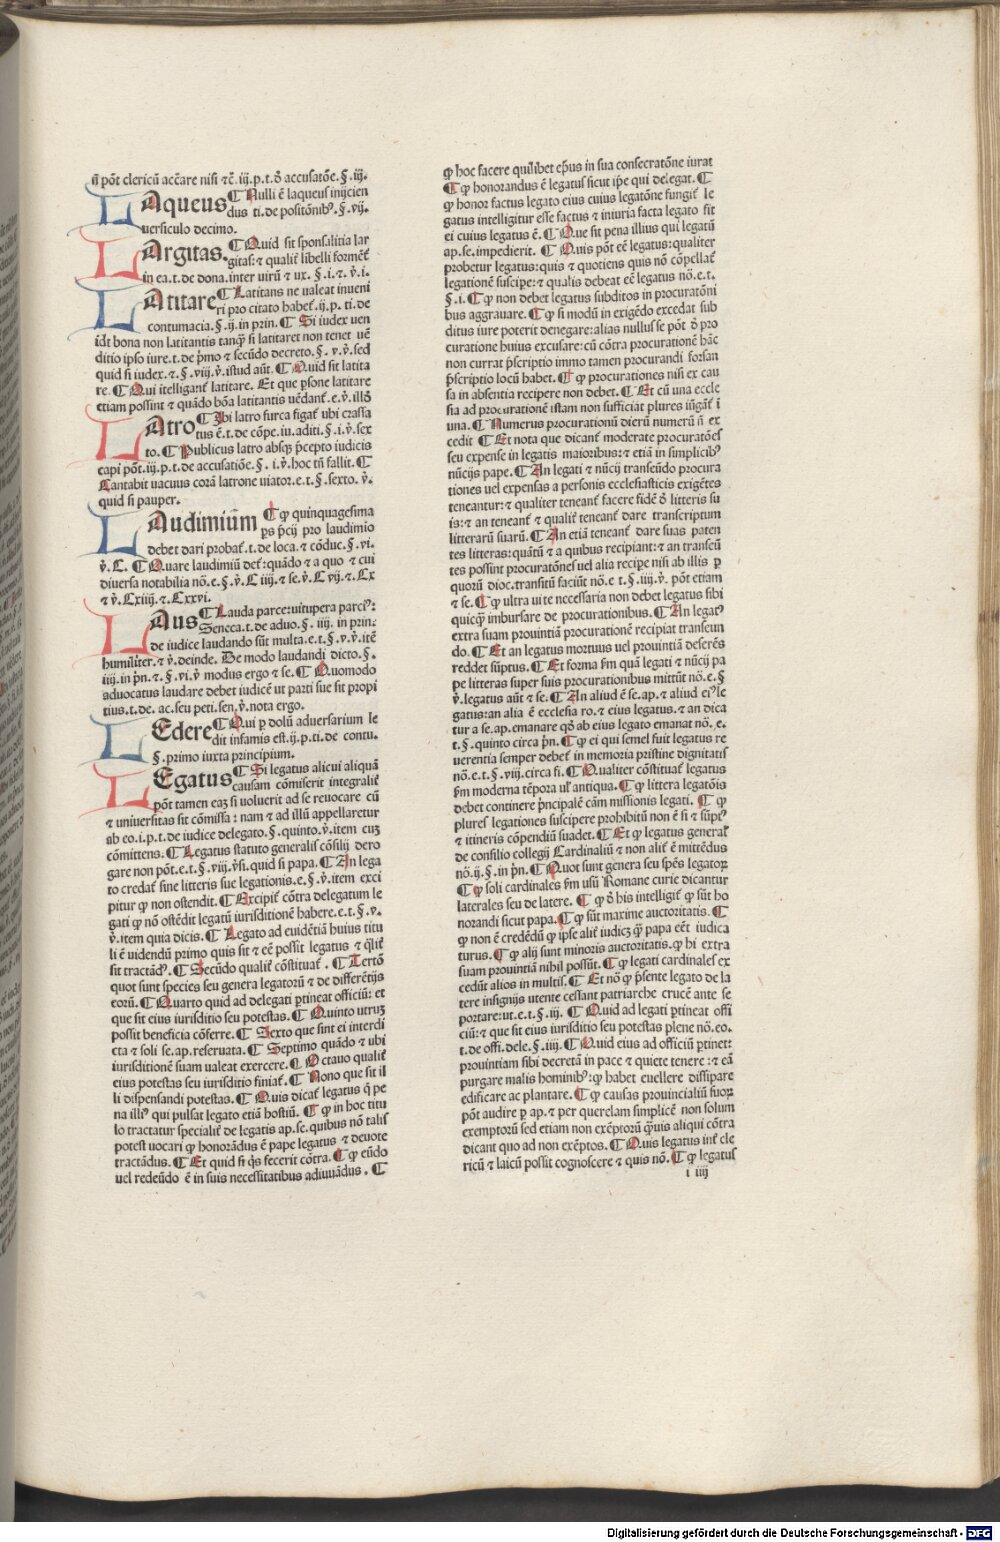 ñ põt clericũ accẽare nisi ⁊c̃. iij. p. t. õ accusatõe. §. iij.
LAqueus ¶ Nulli ẽ laqueus inijcien
dus ti. de positõnibꝰ. §. vij.
uersiculo decimo.
LArgitas. ¶ Quid sit sponsalitia lar
gitas: ⁊ qualiť libelli formẽť
in ea. t. de dona. inter virũ ⁊ ux. §. i. ⁊. v̉. i.
LAtitare ¶ Latitans ne valeat inueni
ri pro citato habeť. ij. p. ti. de
contumacia. §. ij. in prin. ¶ Si iudex uen
idt bona non latitantis tanqȝ si latitaret non tenet uẽ
ditio ipso iure. t. de p̃mo ⁊ secũdo decreto. §. v. v̉. sed
quid si iudex. ⁊. §. viij. v̉. istud aũt. ¶ Quid sit latita
re. ¶ Qui itelliganť latitare. Et que p̱sone latitare
etiam possint ⁊ quãdo bõa latitantis uẽdanť. e. v̉. illõ
LAtro ¶ Ubi latro furca figať ubi crassa
tus ẽ. t. de cõpe. iu. aditi. §. i. v̉. sex
to. ¶ Publicus latro absqȝ p̃cepto iudicis
capi põt. iij. p. t. de accusatiõe. §. i. v̉. hoc tñ fallit. ¶
Cantabit uacuus corã latrone uiator. e. t. §. sexto. v̉.
quid si pauper.
LAudimiũm ¶ Qꝙ quinquagesima
p̱s p̃cij pro laudimio
debet dari probať. t. de loca. ⁊ cõduc. §. vi.
v̉. C. ¶ Quare laudimiũ deť: quãdo ⁊ a quo ⁊ cui
diuersa notabilia nõ. e. §. v̉. C iiij. ⁊ se. v̉. C vij. ⁊. Cx
⁊ v̉. Cxiiij. ⁊. Cxxvi.
LAus ¶ Lauda parce: uitupera parciꝰ:
Seneca. t. de aduo. §. iiij. in prin:
de iudice laudando sũt multa. e. t. §. v. v̉. itẽ
humiliter. ⁊ v̉. deinde. De modo laudandi dicto. §.
iiij. in p̃n. ⁊. §. vi. v̉ modus ergo ⁊ se. ¶ Quomodo
aduocatus laudare debet iudicẽ ut parti sue sit propi
tius. t. de. ac. seu peti. sen. v̉. nota ergo.
LEdere ¶ Qui p̱ dolũ aduersarium le
dit infamis est. ij. p. ti. de contu.
§. primo iuxta principium.
LEgatus ¶ Si legatus alicui aliquã
causam cõmiserit integraliť
põt tamen eaȝ si voluerit ad se reuocare cũ
⁊ uniuersitas sit cõmissa: nam ⁊ ad illũ appellaretur
ab eo. i. p. t. de iudice delegato. §. quinto. v̉. item cuȝ
cõmittens. ¶ Legatus statuto generalis cõsilij dero
gare non põt. e. t. §. viij. v̉ si. quid si papa. ¶ An lega
to credať sine litteris sue legationis. e. §. v̉. item exci
pitur ꝙ non ostendit. ¶ Excipiť cõtra delegatum le
gati ꝙ nõ ostẽdit legatũ iurisditionẽ habere. e. t. §. v.
v̉. item quia dicis. ¶ Legato ad euidẽtiã huius titu
li ẽ uidendũ primo quis sit ⁊ eẽ possit legatus ⁊ q̃liť
sit tractãdꝰ. ¶ Secũdo qualiť cõstituať. ¶ Tertõ
quot sunt species seu genera legatorũ ⁊ de differẽtijs
eorũ. ¶ Quarto quid ad delegati p̱tineat officiũ: et
que sit eius iurisditio seu potestas. ¶ Quinto utruȝ
possit beneficia cõferre. ¶ Sexto que sint ei interdi
cta ⁊ soli se. ap. reseruata. ¶ Septimo quãdo ⁊ ubi
iurisditionẽ suam ualeat exercere. ¶ Octauo qualiť
eius potestas seu iurisditio finiať. ¶ Nono que sit il
li dispensandi potestas. ¶ Quis dicať legatus q̃ pe
na illiꝰ qui pulsat legato etiã hostiũ. ¶ ꝙ in hoc titu
lo tractatur specialiť de legatis ap. se. quibus nõ talis
potest uocari ꝙ honorãdus ẽ pape legatus ⁊ deuote
tractãdus. ¶ Et quid si q̃s fecerit cõtra. ¶ ꝙ eũdo
uel redeũdo ẽ in suis necessitatibus adiuuãdus. ¶
ꝙ hoc facere quilibet ep̃us in sua consecratõne iurat
¶ ꝙ honorandus ẽ legatus sicut ip̃e qui delegat. ¶
ꝙ honor factus legato eius cuius legatõne fungiť le
gatus intelligitur esse factus ⁊ iniuria facta legato sit
ei cuius legatus ẽ. ¶ Que sit pena illius qui legatũ
ap. se. impedierit. ¶ Quis põt eẽ legatus: qualiter
probetur legatus: quis ⁊ quotiens quis nõ cõpellať
legationẽ suscipe: ⁊ qualis debeat eẽ legatus nõ. e. t.
§. i. ¶ ꝙ non debet legatus subditos in procuratõni
bus aggrauare. ¶ ꝙ si modũ in exigẽdo excedat sub
ditus iure poterit denegare: alias nullus se põt õ pro
curatione huius excusare: cũ cõtra procurationẽ hãc
non currat p̃scriptio immo tamen procurandi forsan
p̃scriptio locũ habet. ¶ ꝙ procurationes nisi ex cau
sa in absentia recipere non debet. ¶ Et cũ una eccle
sia ad procurationẽ istam non sufficiat plures iũganť ĩ
una. ¶ Numerus procurationũ dierũ numerũ ñ ex
cedit ¶ Et nota que dicanť moderate procuratões
seu expense in legatis maioribus: ⁊ etiã in simplicibꝰ
nũcijs pape. ¶ An legati ⁊ nũcij transeũdo procura
tiones uel expensas a personis ecclesiasticis exigẽtes
teneantur: ⁊ qualiter teneanť facere fidẽ õ litteris su
is: ⁊ an teneanť ⁊ qualiť teneanť dare transcriptum
litterarũ suarũ. ¶ An etiã teneanť dare suas paten
tes litteras: quãtũ ⁊ a quibus recipiant: ⁊ an transeũ
tes possint procuratões uel alia recipe nisi ab illis p̱
quorũ dioc. transitũ faciũt nõ. e t. §. iiij. v̉. põt etiam
⁊ se. ¶ ꝙ ultra uite necessaria non debet legatus sibi
quicqȝ imbursare de procurationibus. ¶ An legatꝰ
extra suam prouintiã procurationẽ recipiat transeun
do. ¶ Et an legatus mortuus uel prouintiã deserẽs
reddet sũptus. ¶ Et forma fm̃ quã legati ⁊ nũcij pa
pe litteras super suis procurationibus mittũt nõ. e. §
v̉. legatus aũt ⁊ se. ¶ An aliud ẽ se. ap. ⁊ aliud eiꝰ le
gatus: an alia ẽ ecclesia ro. ⁊ eius legatus. ⁊ an dica
tur a se. ap. emanare qõ ab eius legato emanat nõ. e.
t. §. quinto circa p̃n. ¶ ꝙ ei qui semel fuit legatus re
uerentia semper debeť in memoria pristine dignitatis
nõ. e. t. §. viij. circa fi. ¶ Qualiter cõstituať legatus
fm̃ moderna tẽpora ul' antiqua. ¶ ꝙ littera legatõis
debet continere p̃ncipalẽ cãm missionis legati. ¶ ꝙ
plures legationes suscipere prohibitũ non ẽ si ⁊ sũptꝰ
⁊ itineris cõpendiũ suadet. ¶ Et ꝙ legatus general'
de consilio collegij Cardinaliũ ⁊ non aliť ẽ mittẽdus
nõ. ij. §. in p̃n. ¶ Quot sunt genera seu sp̃es legatoꝝ
¶ ꝙ soli cardinales fm̃ usũ Romane curie dicantur
laterales seu de latere. ¶ ꝙ õ his intelligiť ꝙ sũt ho
norandi sicut papa. ¶ ꝙ sũt maxime auctoritatis. ¶
ꝙ non ẽ credẽdũ ꝙ ip̃se aliť iudicȝ q̃ papa eẽt iudica
turus. ¶ ꝙ alij sunt minoris auctoritatis. ꝙ hi extra
suam prouintiã nihil possũt. ¶ ꝙ legati cardinales ex
cedũt alios in multis. ¶ Et nõ ꝙ p̃sente legato de la
tere insignijs utente cessant patriarche crucẽ ante se
portare: ut. e. t. §. iij. ¶ Quid ad legati p̱tineat offi
ciũ: ⁊ que sit eius iurisditio seu potestas plene nõ. eo.
t. de offi. dele. §. iiij. ¶ Quid eius ad officiũ p̱tinet:
prouintiam sibi decretã in pace ⁊ quiete tenere: ⁊ eã
purgare malis hominibꝰ: ꝙ habet euellere dissipare
edificare ac plantare. ¶ ꝙ causas prouincialiũ suoꝝ
põt audire p̱ ap. ⁊ per querelam simplicẽ non solum
exemptorũ sed etiam non exẽptorũ q̃uis aliqui cõtra
dicant quo ad non exẽptos. ¶ Quis legatus inť cle
ricũ ⁊ laicũ possit cognoscere ⁊ quis nõ. ¶ ꝙ legatus
i iiij
Digitalisierung gefördert durch die Deutsche Forschungsgemeinschaft - DFG